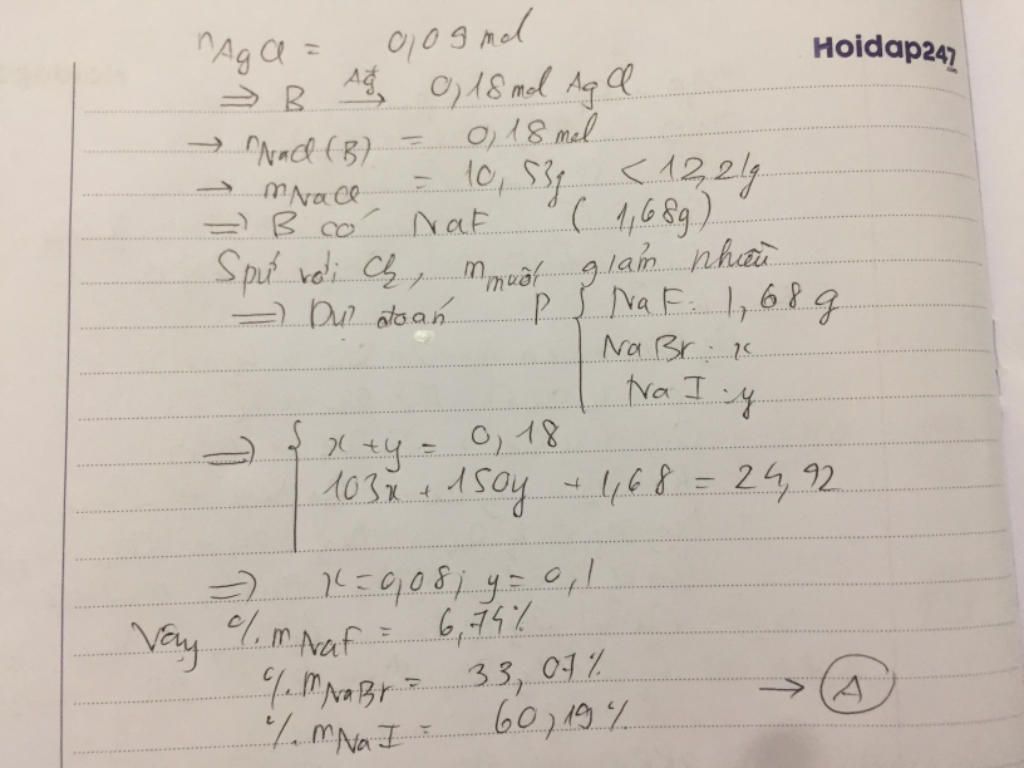 nAgCl = 0,09 mol
Hoidap247
.com
⇒ B Ag⁺→ 0,18 mol AgCl
→ nNaCl(B) = 0,18 mol
→ mNaCl = 10,53g < 12,21g
⇒ B có NaF (1,68g)
Spứ với Cl₂, m muối giảm nhiều
⇒ Dự đoán P { NaF: 1,68g
NaBr: x
NaI: y
⇒ { x + y = 0,18
103x + 150y + 1,68 = 24,92
⇒ x = 0,08; y = 0,1
Vậy %mNaF = 6,74%
%mNaBr = 33,07%
%mNaI = 60,19% → A